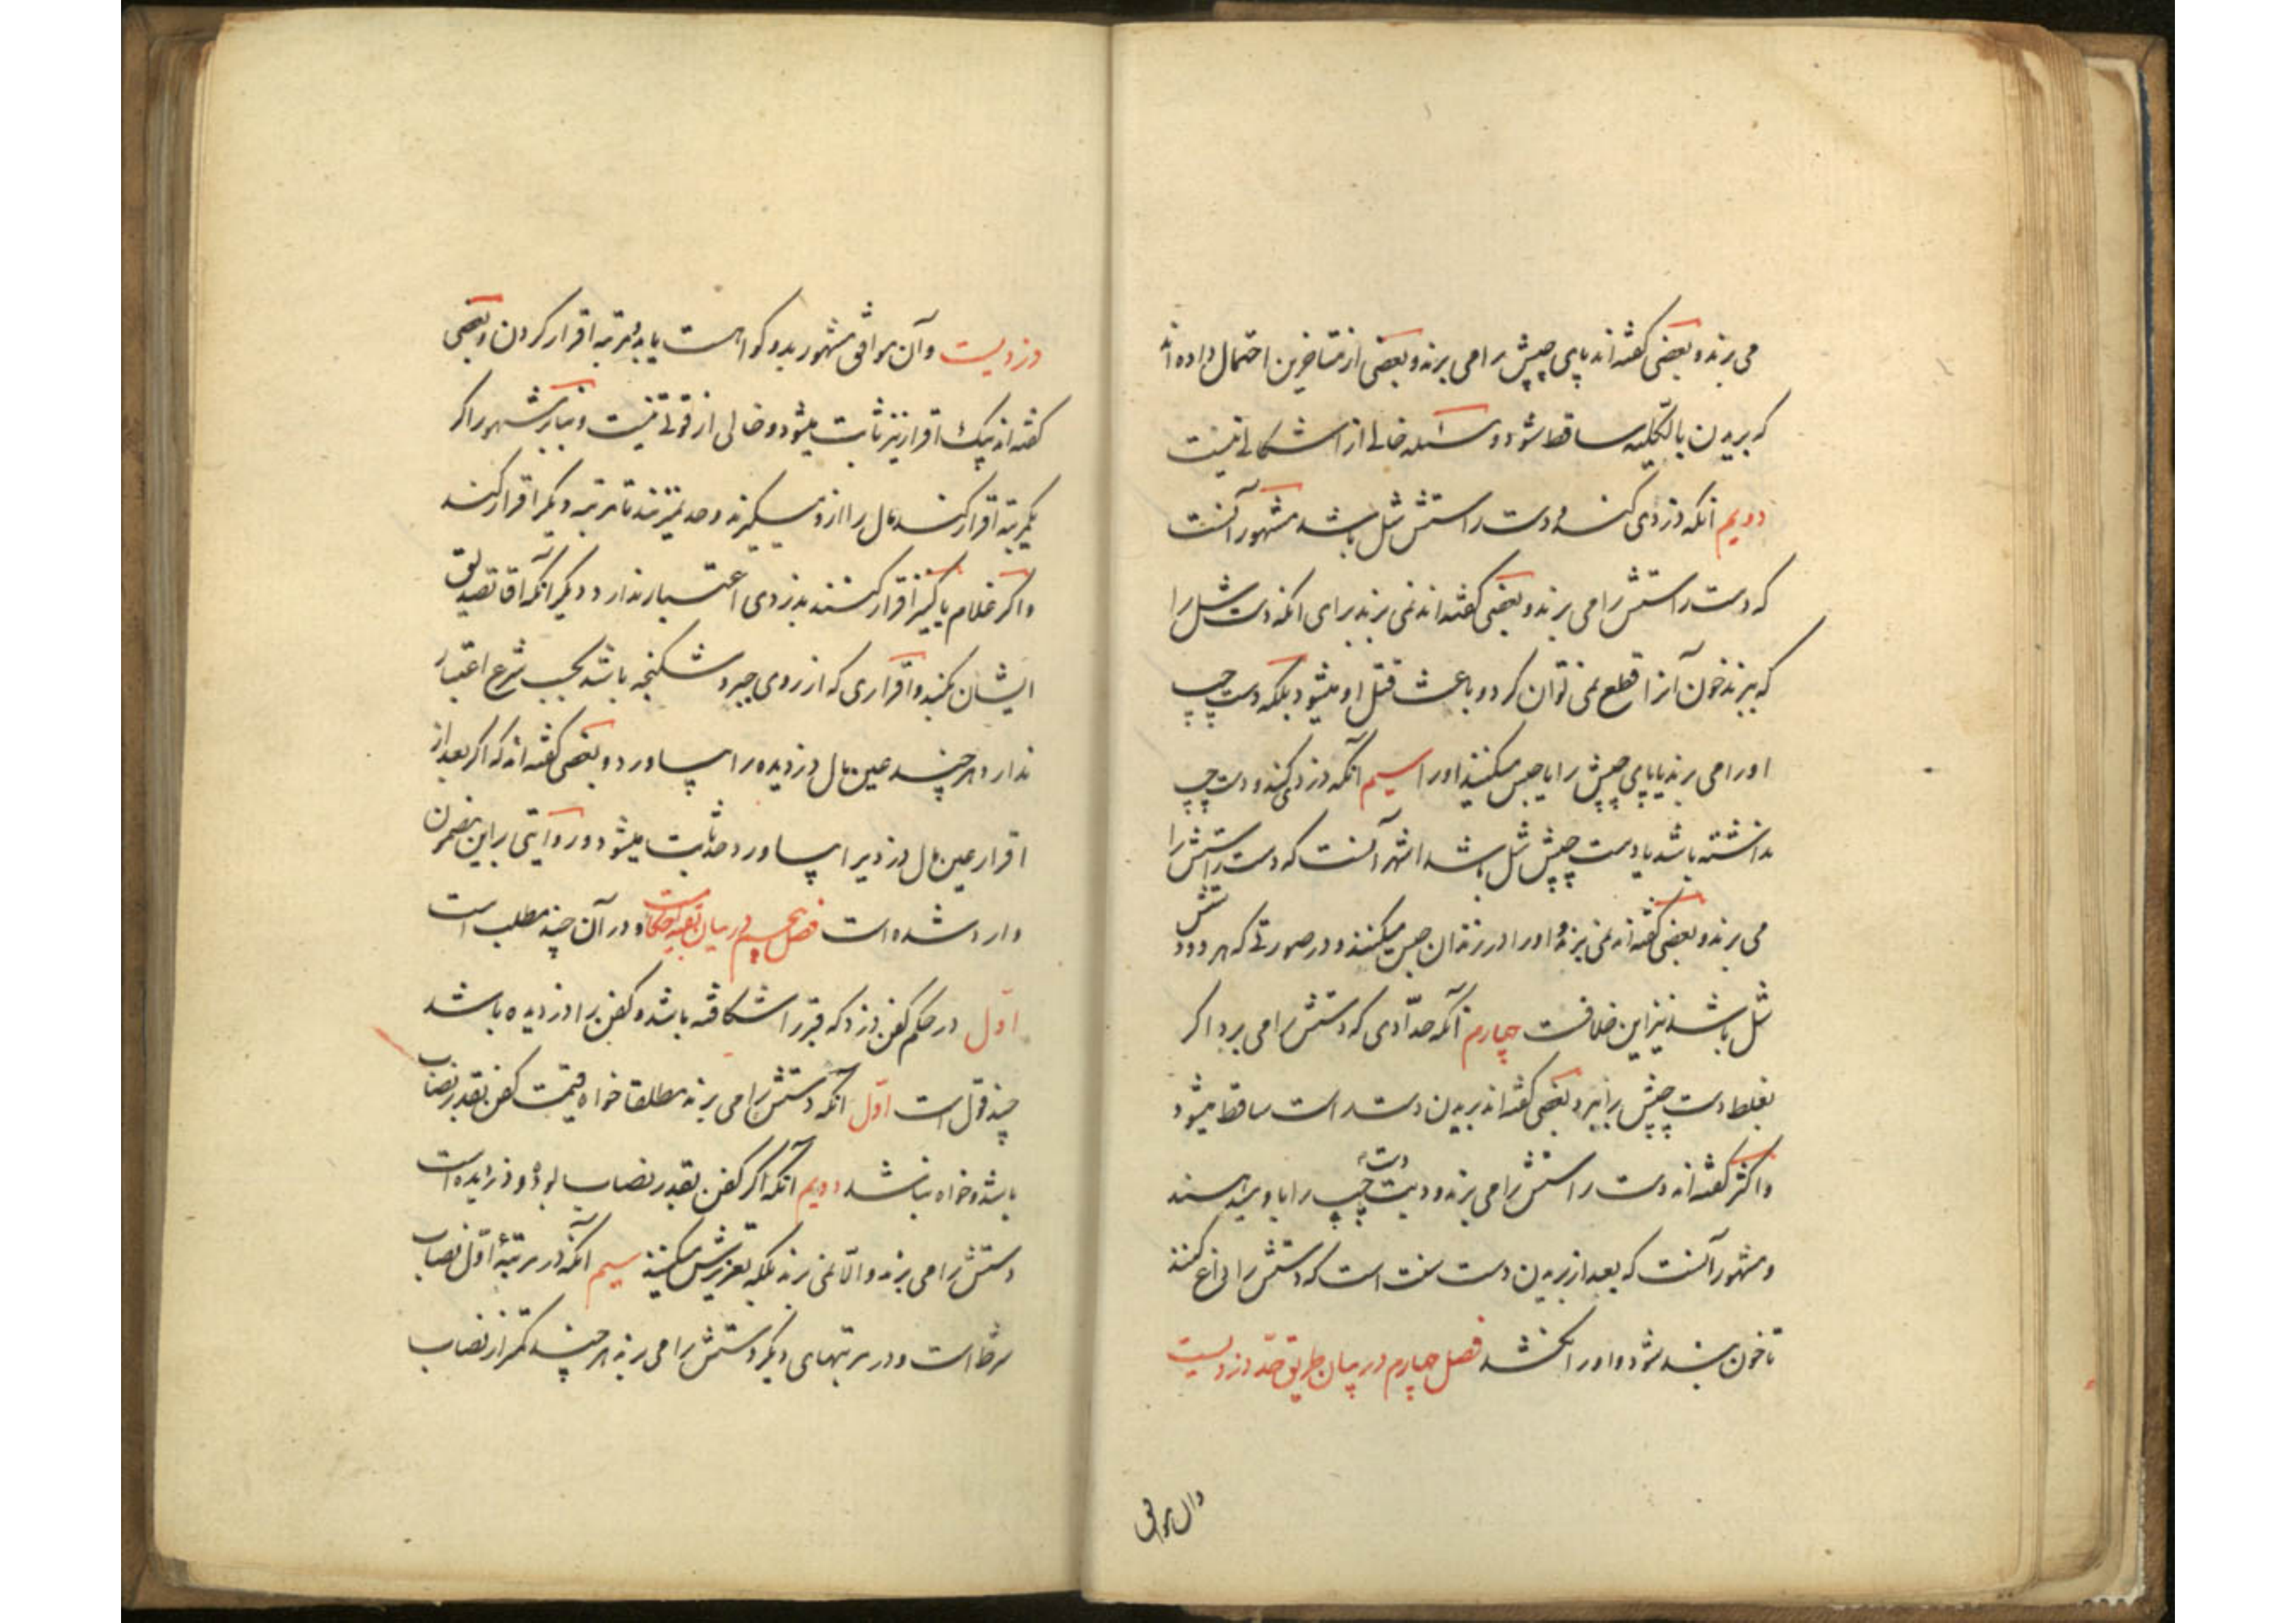 می برند و بعضی گفته اند پای چپش را می برند و بعضی از متاخرین احتمال داده اند
که بریدن بالکلیه ساقط شود و مسئله خالی از اشکالی نیست
دویم آنکه دزدی کند و دست راستش شل باشد مشهور آنست
که دست راستش را می برند و بعضی گفته اند نمی برند برای آنکه دست شل را
که ببرند خون آنرا قطع نمی توان کرد و باعث قتل او میشود بلکه دست چپ
او را می برند یا پای چپش را یا حبس میکنند او را سیم آنکه دزدی کند و دست چپ
نداشته باشد یا دست چپش شل باشد اشهر آنست که دست راستش را
می برند و بعضی گفته اند نمی برند و او را در زندان حبس میکنند و در صورتی که هر دو دستش
شل باشد نیز این خلافست چهارم آنکه حدّادی که دستش را می برد اگر
بغلط دست چپش را ببرد بعضی گفته اند بریدن دست راست ساقط میشود
و اکثر گفته اند دست راستش را می برند و دیت دست چپ را باو میدهند
و مشهور آنست که بعد از بریدن دست سنت است که دستش را داغ کنند
تا خون بند شود و او را نکشد فصل چهارم در بیان طریق حدّ دزدیست
و آن موافق
دزدیست و آن موافق مشهور بدو گواهست یا بدو مرتبه اقرار کردن و بعضی
گفته اند بیک اقرار نیز ثابت میشود و خالی از قوتی نیست و بنابر مشهور اگر
یکمرتبه اقرار کند مال را ازو میگیرند و حد نمیزنند تا مرتبه دیگر اقرار کند
و اگر غلام یا کنیز اقرار کنند بدزدی اعتبار ندارد و دیگر آنکه آقا تصدیق
ایشان بکند و اقراری که از روی جبر و شکنجه باشد بحسب شرع اعتبار
ندارد هرچند عین مال دزدیده را بیاورد و بعضی گفته اند که اگر بعد از
اقرار عین مال دزدیرا بیاورد حد ثابت میشود و روایتی براین مضمون
وارد شده است فصل پنجم در بیان بقیه احکامست و در آن چند مطلب است
اوّل در حکم کفن دزد که قبر را شکافته باشد و کفن را دزدیده باشد
چند قول است اوّل آنکه دستش را می برند مطلقا خواه قیمت کفن بقدر نصاب
باشد و خواه نباشد دویم آنکه اگر کفن بقدر نصاب بوده و دزدیده است
دستش را می برند و الّا نمی برند بلکه تعزیرش میکنند سیم آنکه در مرتبهٔ اوّل نصاب
شرط است و در مرتبهای دیگر دستش را می برند هرچند کمتر از نصاب